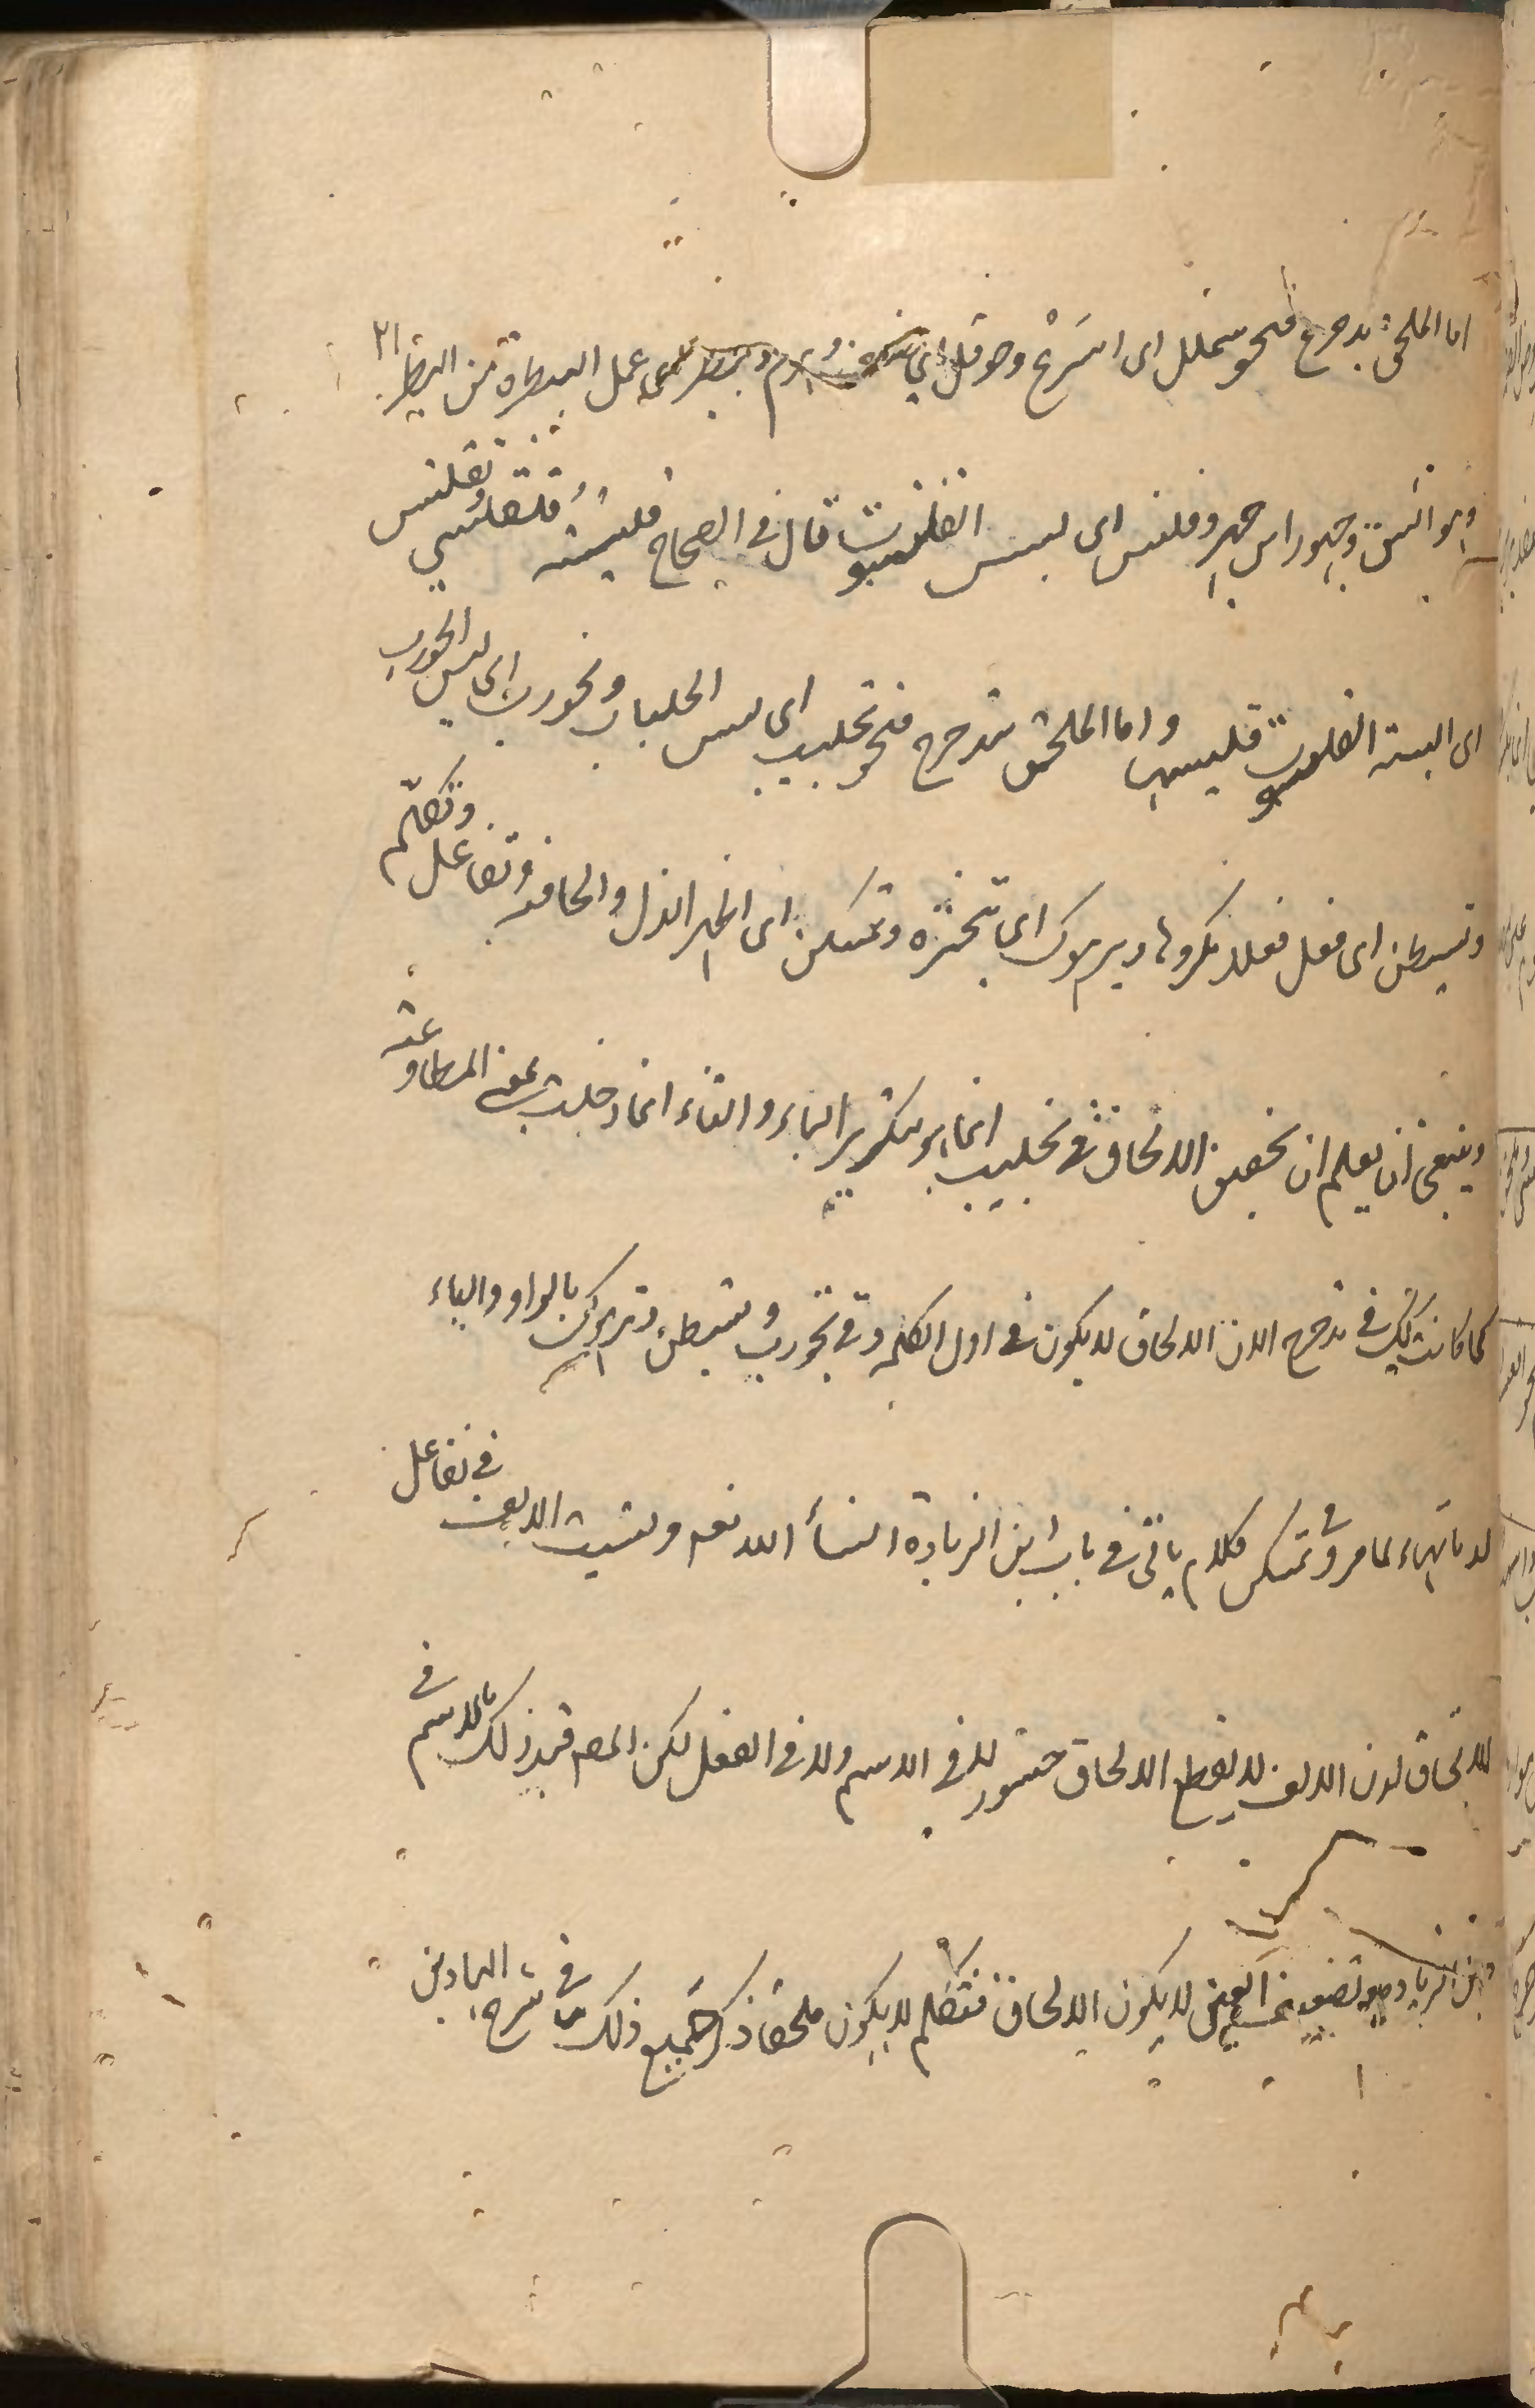 اما الملحق بدحرج فنحو شملل اى اسرع وحوقل اى وهرم وبيطر اى عمل البيطرة من البيطر
وهو الشق وجهور اى جهر وقلنس اى لبس القلنسوة قال فى الصحاح قلنسته فتقلنسى وتقلنس
اى البسته القلنسوة فلبسها واما الملحق بتدحرج فنحو تجلبب اى لبس الجلباب وتجورب اى لبس الجورب
وتشيطن اى فعل فعلا مكروها وترهوك اى تبختر وتمسكن اى اظهر الذل والحاجة وتغافل وتكلم
وينبغى ان يعلم ان تحقيق الالحاق فى تجلبب انما هو بتكرير الباء والتاء انما دخلت بمعنى المطاوعة
كما كانت كذلك فى تدحرج لان الالحاق لا يكون فى اول الكلمة وفى تجورب وتشيطن وترهوك بالواو والياء
لا بالتاء لما مر وفى تمسكن كلام ياتى فى باب ابن الزيادة انشأ الله تعم وليست الالف فى تغافل
للالحاق لان الالف لا يقطع الالحاق حشوا لا فى الاسم ولا فى الفعل لكن المصم قيد ذلك بالاسم فى
ابن الزيادة وتضعيف العين لا يكون للالحاق فتكلم لا يكون ملحقا ذكر جميع ذلك فى شرح الهادى